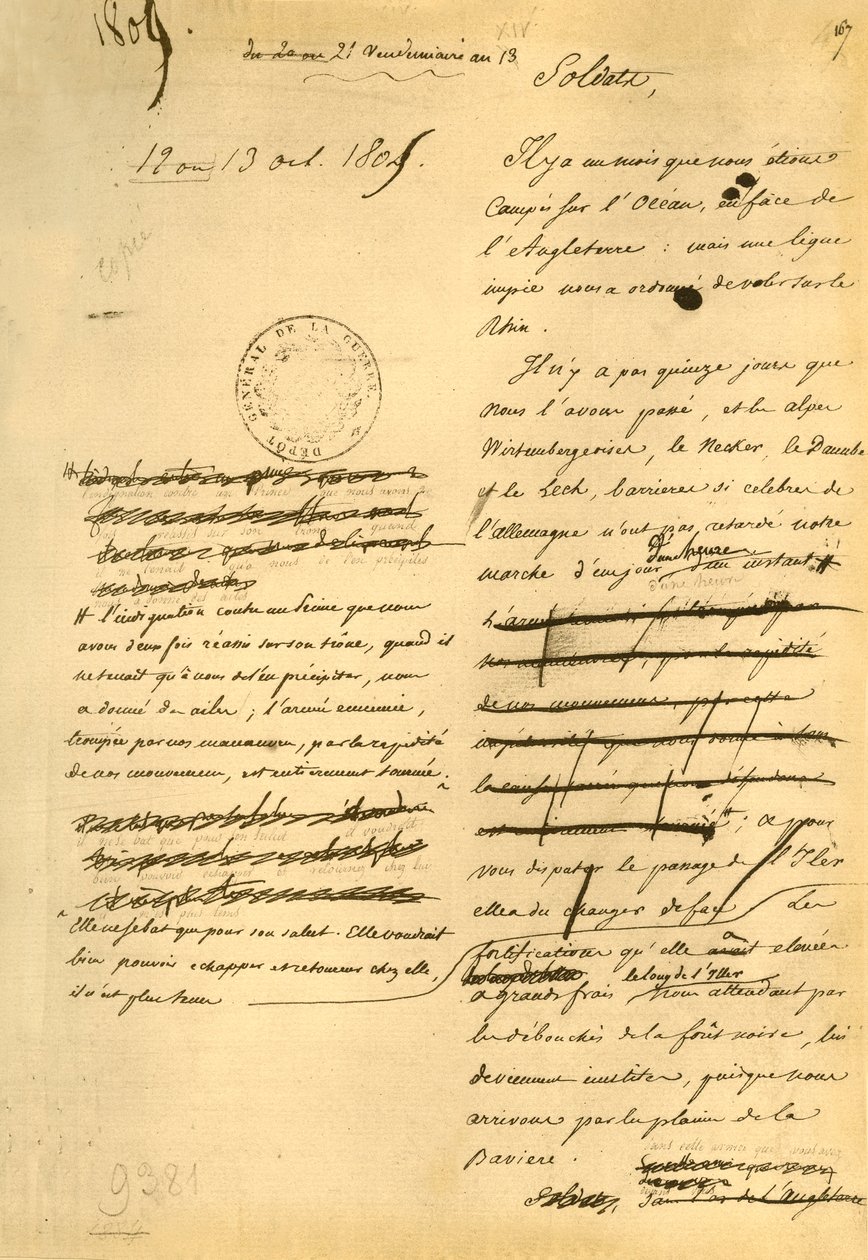 1805.
du 20 ou 21 Vendemiaire an 13
XIV
167
12 ou 13 oct. 1805.
copié
DÉPÔT GÉNÉRAL DE LA GUERRE.
Soldats,
Il y a un mois que nous étions
Campés sur l'Océan, en face de
l'Angleterre : mais une ligue
impie nous a ordonné de voler sur le
Rhin.
Il n'y a pas quinze jours que
nous l'avons passé, et les alpes
Wirtembergeoises, le Necker, le Danube
et le Lech, barrieres si celebres de
l'allemagne n'ont pas retardé notre
d'une heure
marche d'un jour d'un instant #
d'une heure
nos manœuvres, par la rapidité
de nos mouvemens, par cette
impétuosité que vous donne à tous
la cause que vous défendons
est entierement tournée #; et pour
vous disputer le passage de l'Iler
elle a du changer de face. Les
fortifications qu'elle avait a elevées
le long de l'Iller
a grands frais nous attendant par
les débouchés de la forêt noire, lui
deviennent inutiles, puisque nous
arrivons par les plaines de la
Baviere.
sans cette armée que vous avez
devant vous
Soldats, sans l'or de l'Angleterre
l'indignation contre un Prince que nous avons
replacés sur son trone quand
il ne tenait qu'à nous de l'en précipiter
nous a donné des ailes
# l'indignation contre un Prince que nous
avons deux fois réassis sur son trône, quand il
ne tenait qu'à nous de l'en précipiter, nous
a donné des ailes ; l'armée ennemie,
trompée par nos manœuvres, par la rapidité
de nos mouvemens, est entierement tournée.
il ne se bat que pour son salut il voudrait
bien pouvoir echapper et retourner chez lui
il n'est plus tems
Elle ne se bat que pour son salut. Elle voudrait
bien pouvoir echapper et retourner chez elle,
il n'est plus tems
9381